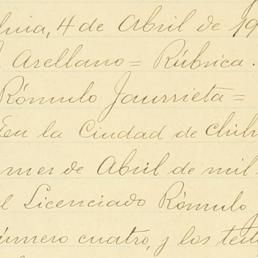 hua, 4 de Abril de 19
Arellano = Rúbrica.
Rómulo Jaurrieta =
En la Ciudad de Chih
mes de Abril de mil
el Licenciado Rómulo J
número cuatro, y los test